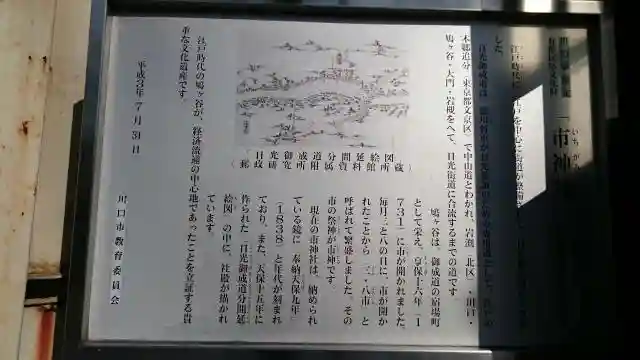 市神
いちがみ
した。
本郷追分（東京都文京区）で中山道とわかれ、岩渕（北区）、川口・
鳩ヶ谷・大門・岩槻をへて、日光街道に合流するまでの道です
鳩ヶ谷は、御成道の宿場町
として栄え、享保十六年（1
731）に市が開かれました。
毎月三と八の日に、市が開か
れたことから「三・八市」と
呼ばれて繁盛しました。その
市の祭神が市神です。
現在の市神社は、納められ
ている鏡に「奉納天保九年」
（1838）と年代が刻まれ
ており、また、天保十五年に
作られた「日光御成道分間延
絵図」の中に、社殿が描かれ
ています。
日光御成道分間延絵図
（郵政研究所附属資料館所蔵）
江戸時代の鳩ヶ谷が、経済流通の中心地であったことを立証する貴
重な文化遺産です。
平成3年7月31日
川口市教育委員会